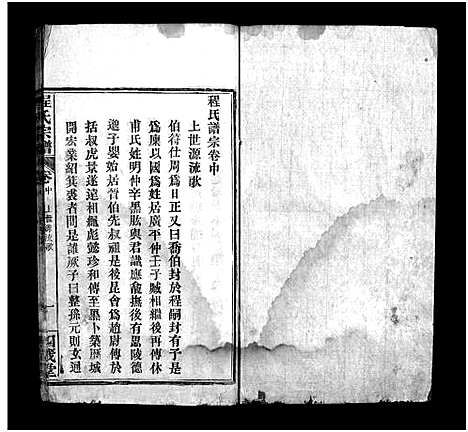 程氏譜宗卷中
上世源流歌
伯符仕周為日正又曰喬伯封於程嗣封有子是
為康以國為姓居廣平仲壬子賊相繼後再傳休
甫氏姓明仲辛黑肱與君識應龕撫後有罵陵德
遡子嬰始居晉伯先叔祖是後是會為趙尉傳於
括叔虎景遂遠相飆彪懿珍和傳至黑卜築歷城
開宏業紹箕裘者問是誰厥子曰整孫元則玄通
程氏宗譜
卷中
上世源流歌
一